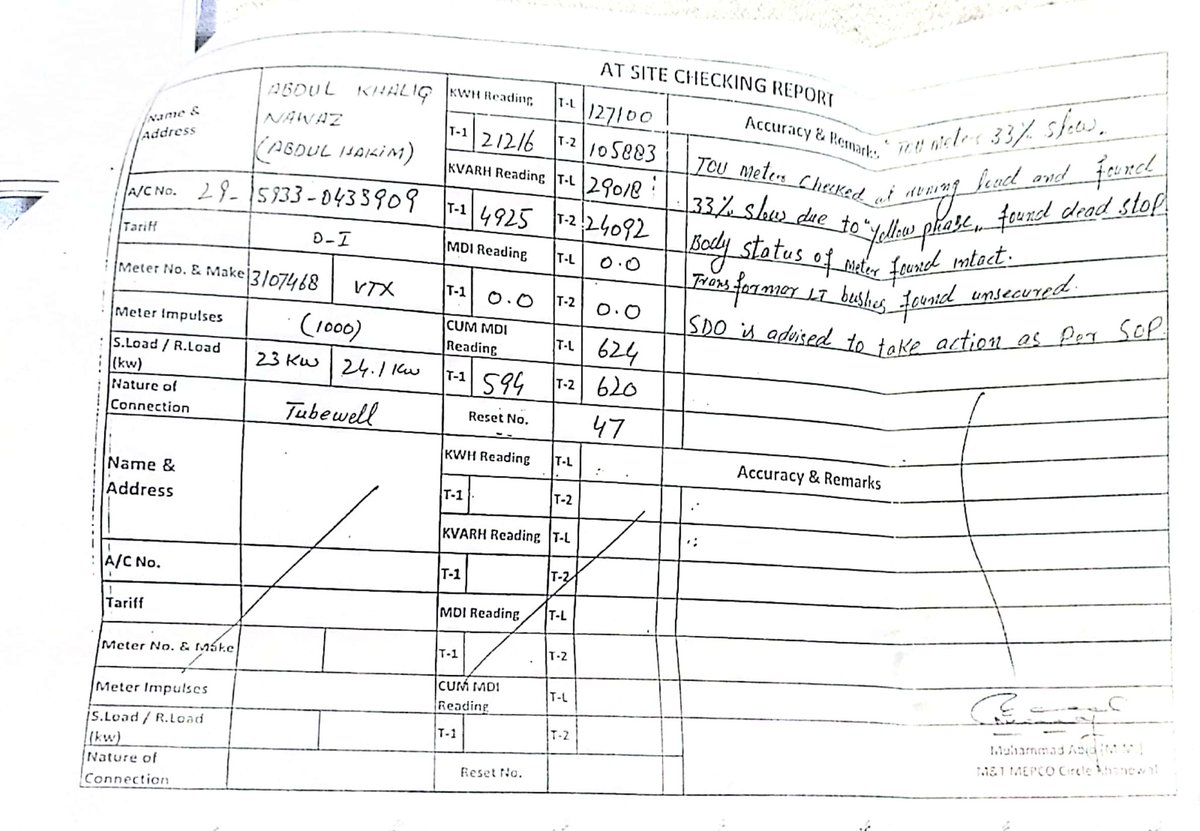 AT SITE CHECKING REPORT
Name & Address
ABDUL KHALIQ
NAWAZ
(ABDUL HAKIM)
KWH Reading T-L 127100
T-1 21216 T-2 105883
Accuracy & Remarks
"TOU meter 33% slow.
A/C No. 29- 5933-0433909
KVARH Reading T-L 29018
T-1 4925 T-2 24092
TOU meter checked at runing load and found
33% slow due to "yellow phase" found dead stop
Body status of meter found intact.
Transformer LT bushes found unsecured.
SDO is advised to take action as Per SOP.
Tariff D-I
MDI Reading T-L 0.0
Meter No. & Make 3107468 VTX
T-1 0.0 T-2 0.0
Meter Impulses (1000)
CUM MDI Reading T-L 624
S.Load / R.Load (kw) 23 Kw 24.1 Kw
T-1 594 T-2 620
Nature of Connection Tubewell
Reset No. 47
Name & Address
KWH Reading T-L
Accuracy & Remarks
T-1 T-2
KVARH Reading T-L
A/C No.
T-1 T-2
Tariff
MDI Reading T-L
Meter No. & Make
T-1 T-2
Meter Impulses
CUM MDI Reading T-L
S.Load / R.Load (kw)
T-1 T-2
Nature of Connection
Reset No.
Muhammad
M&T MEPCO Circle Khanewal